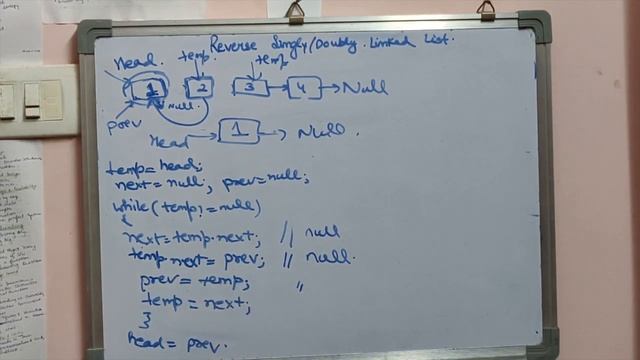 Reverse Singly/Doubly Linked List.
head. temp. temp
1 2 3 4 Null
Null.
prev
head 1 Null.
temp = head;
next = null, prev = null;
while (temp! = null)
{
next = temp.next; // null
temp.next = prev; // null.
prev = temp; "
temp = next;
}
head = prev.